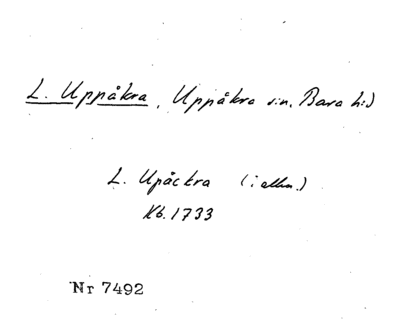 L. Uppåkra, Uppåkra sn, Bara hd
L. Upåckra (i allm.)
Kb. 1733
Nr 7492